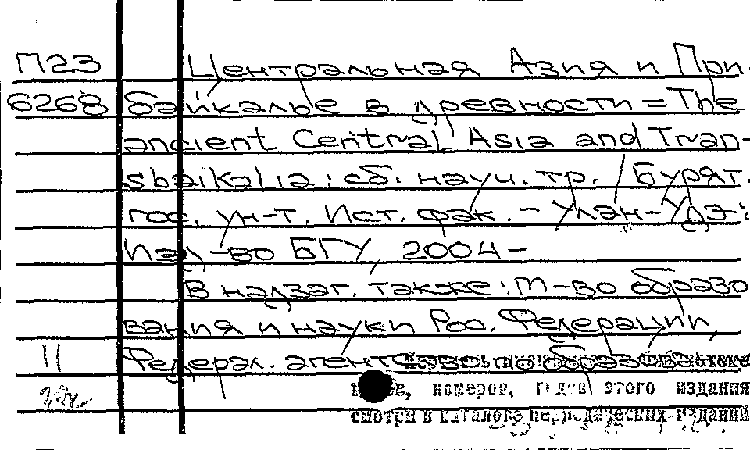 П23 Центральная Азия и При-
6268 байкалье в древности = The
ancient Central Asia and Tran-
sbaikalia : сб. науч. тр. / Бурят.
гос. ун-т. Ист. фак. - Улан-Удэ :
Изд-во БГУ, 2004-
В надзаг. также : М-во образо
вания и науки Рос. Федерации,
11 Федерал. агентство по образова
номеров, годов этого издания
смотри в каталоге периодических изданий